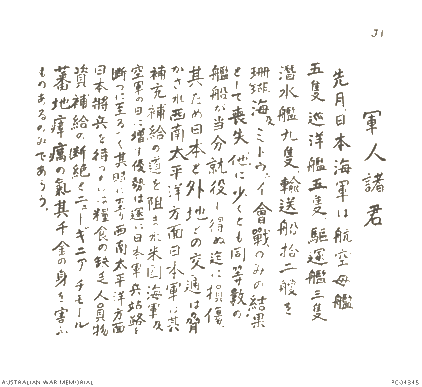 J1
軍人諸君
先月日本海軍は航空母艦
五隻巡洋艦五隻駆逐艦三隻
潜水艦九隻輸送船拾二艘を
珊瑚海及ミドウェイ會戰のみの結果
として喪失他に少くとも同等數の
艦船が當分就役し得ぬ迄に損傷
其ため日本と外地との交通は脅
かされ西南太平洋方面日本軍は其
補充補給の道を阻まれ米國海軍及
空軍の日に増す優勢は遂に日本軍兵站路を
断つに至るべく其際に至り西南太平洋方面
日本將兵を待つものは糧食の缺乏人員物
資補給の断絶とニューギニアチモール
蕃地瘴癘の氣其千金の身を害ふ
ものあるのみであらう。
AUSTRALIAN WAR MEMORIAL
PC04345